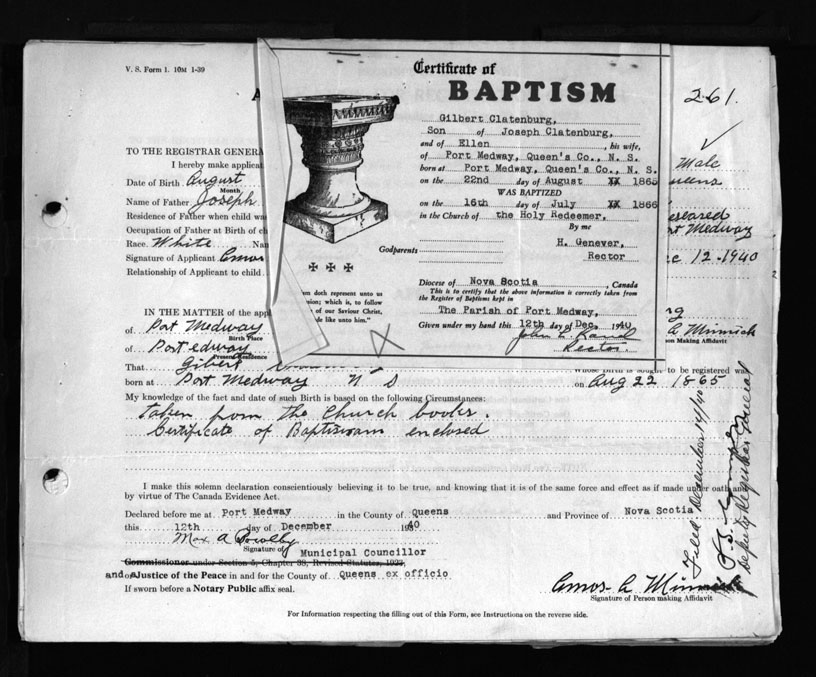 V. S. Form 1. 10M 1-39
261.
TO THE REGISTRAR GENERA
I hereby make applicat
Male
Date of Birth August
Month
Name of Father Joseph
Residence of Father when child wa
Occupation of Father at Birth of ch
Race White Na
Signature of Applicant Amos
Relationship of Applicant to child
Medway
12-1940
Certificate of
BAPTISM
Gilbert Clatenburg,
Son of Joseph Clatenburg,
and of Ellen , his wife,
of Port Medway, Queen's Co., N. S.
born at Port Medway, Queen's Co., N. S.
on the 22nd day of August XX 1865
WAS BAPTIZED
on the 16th day of July XX 1866
in the Church of the Holy Redeemer,
By me
H. Genever,
Rector
Godparents
Diocese of Nova Scotia , Canada
This is to certify that the above information is correctly taken from
the Register of Baptisms kept in
The Parish of Port Medway,
Given under my hand this 12th day of Dec. 1940
Rector.
m doth represent unto us
sion; which is, to follow
of our Saviour Christ,
de like unto him."
IN THE MATTER of the appl
of Port Medway
Birth Place
of Port edway
Present Residence
A Minnick
son Making Affidavit
That Gilbert
whose Birth is sought to be registered was
born at Port Medway N S on Aug 22 1865
My knowledge of the fact and date of such Birth is based on the following Circumstances:
Taken from the Church books.
Certificate of Baptisam enclosed
I make this solemn declaration conscientiously believing it to be true, and knowing that it is of the same force and effect as if made under oath and
by virtue of The Canada Evidence Act.
Declared before me at Port Medway in the County of Queens and Province of Nova Scotia
this 12th day of December 1940
Max A
Signature of Municipal Councillor
Commissioner under Section 5, Chapter 38, Revised Statutes, 1923,
and or Justice of the Peace in and for the County of Queens ex officio
If sworn before a Notary Public affix seal.
Amos A Minnick
Signature of Person making Affidavit
For Information respecting the filling out of this Form, see Instructions on the reverse side.
Filed December 14/40
Deputy Registrar General